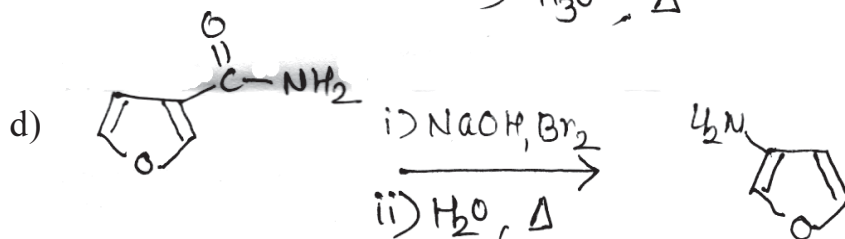 H₃O⁺, Δ
O
C-NH₂
d)
O
i) NaOH, Br₂
ii) H₂O, Δ
H₂N
O